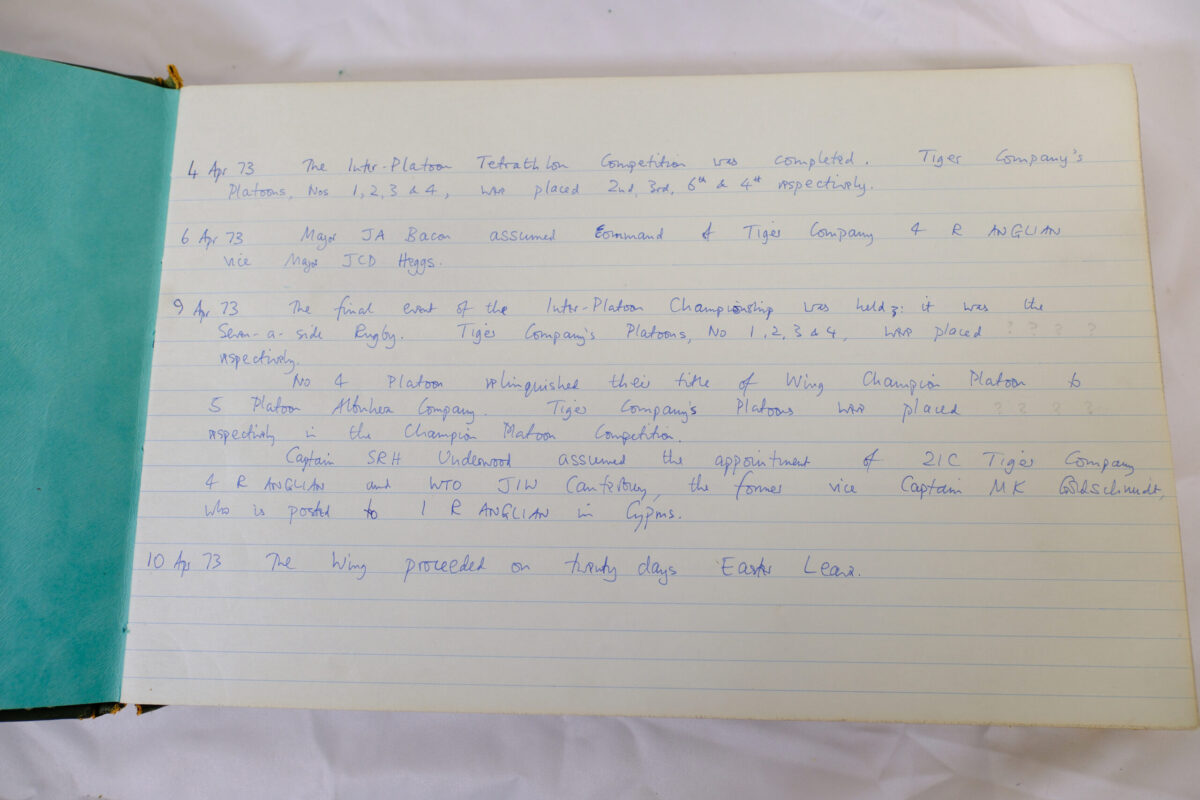 4 Apr 73 The Inter-Platoon Tetrathlon Competition was completed. Tiger Company's
Platoons, Nos 1, 2, 3 & 4, were placed 2nd, 3rd, 6th & 4th respectively.
6 Apr 73 Major JA Bacon assumed Command of Tiger Company 4 R ANGLIAN
vice Major JCD Heggs.
9 Apr 73 The final event of the Inter-Platoon Championship was held: it was the
Seven-a-side Rugby. Tiger Company's Platoons, No 1, 2, 3 & 4, were placed ? ? ? ?
respectively.
No 4 Platoon relinquished their title of Wing Champion Platoon to
5 Platoon Albuhera Company. Tiger Company's Platoons were placed ? ? ? ?
respectively in the Champion Platoon Competition.
Captain SRH Underwood assumed the appointment of 2IC Tiger Company
4 R ANGLIAN and WTO JIW Canterbury, the former vice Captain MK Goldschmidt,
who is posted to 1 R ANGLIAN in Cyprus.
10 Apr 73 The Wing proceeded on twenty days Easter Leave.